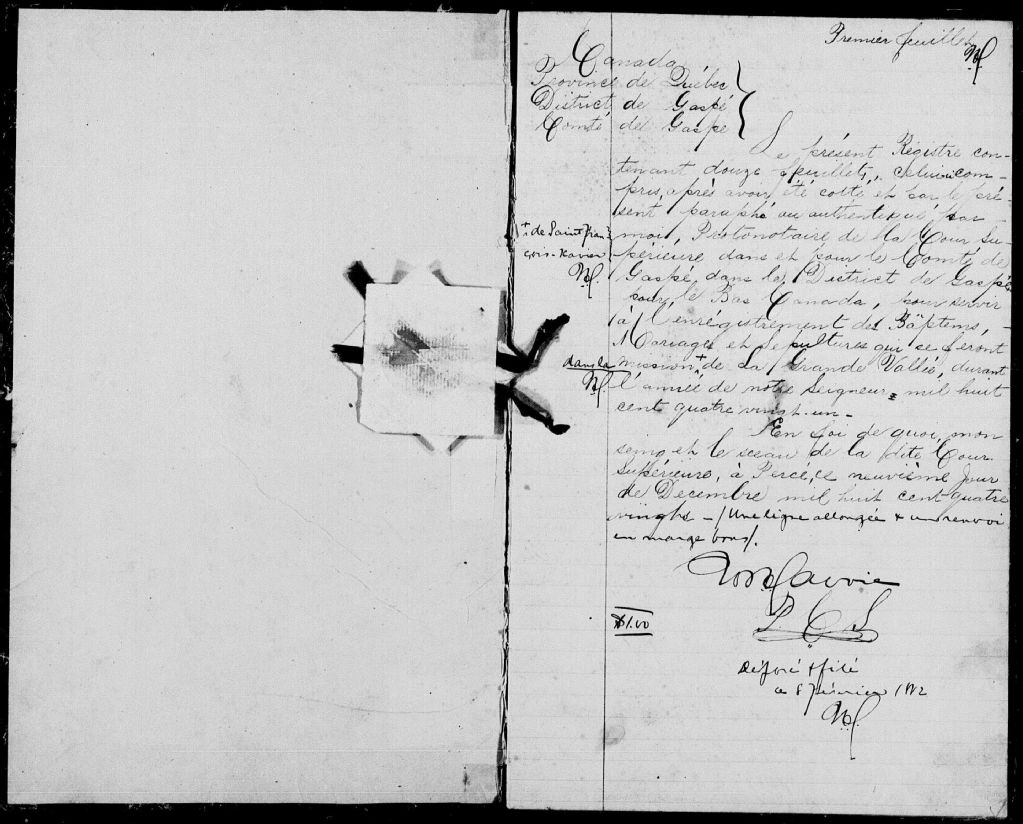 Premier feuillet
Canada
Province de Québec
District de Gaspé
Comté de Gaspé
Le présent Régistre con-
tenant douze feuillets, celui-ci com-
pris, après avoir été cotté et par le pré-
sent, paraphé ou authentiqué par
moi, Protonotaire de la Cour Su-
périeure dans et pour le Comté de
Gaspé, dans le District de Gaspé
pour le Bas Canada, pour servir
à l'enrégistrement des Baptems,
Mariages et Sepultures qui se feront
dans la mission + de La Grande Vallée, durant
l'année de notre Seigneur = mil huit
cent quatre vingt-un -
+ de Saint Fran-
çois-Xavier
En foi de quoi, mon
seing et le sceau de la dite Cour
Supérieure, à Percé, ce neuvième jour
de Decembre mil huit cent quatre
vingts - / Une ligne allongée & un renvoi
en marge bons /.
P. C. S.
$1.00
Déposé & filé
ce 8 février 1882